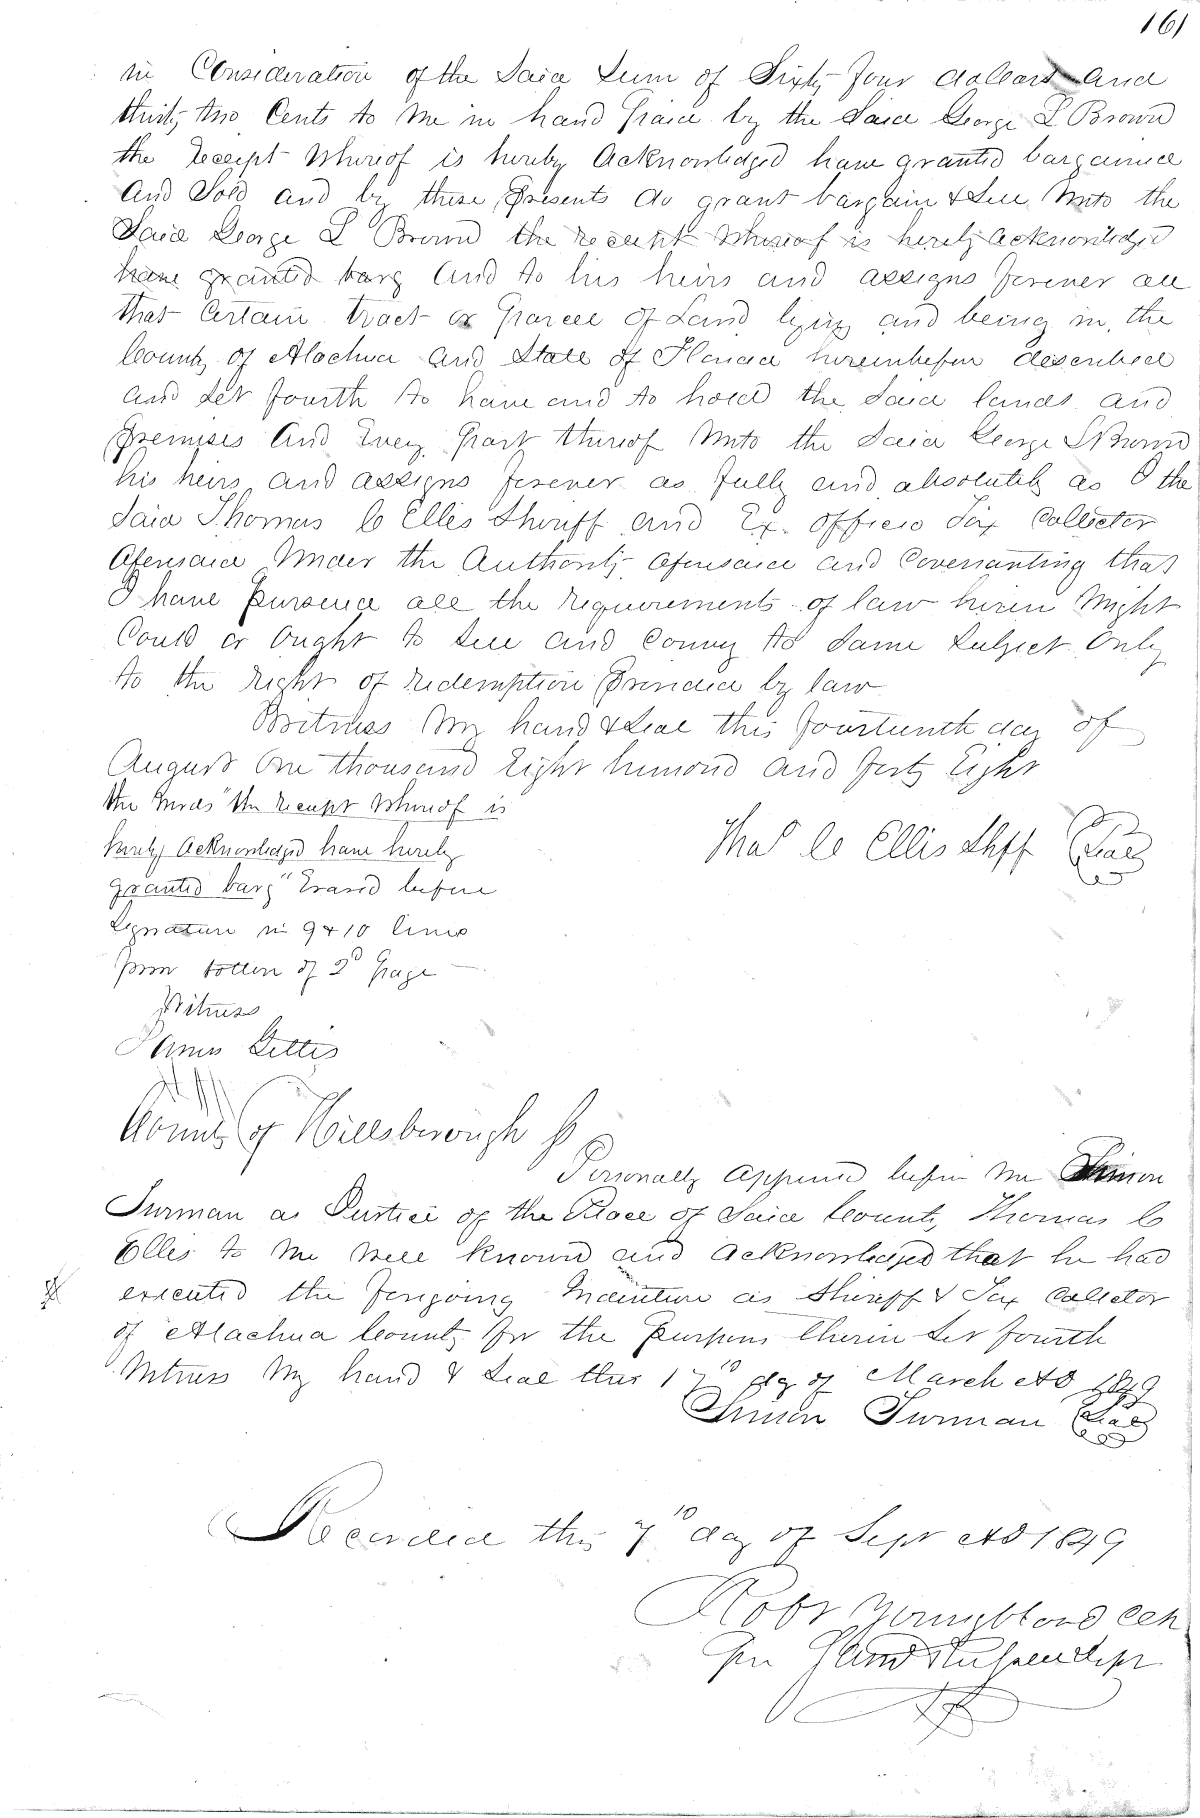 161
in Consideration of the Said Sum of Sixty four dollars and
thirty two Cents to me in hand Paid by the Said George L Brown
the receipt whereof is hereby Acknowledged have granted bargained
and Sold and by these Presents do grant bargain & Sell unto the
Said George L Brown the receipt whereof is hereby acknowledged
have granted barg and to his heirs and assigns forever all
that Certain tract or Parcel of Land lying and being in the
County of Alachua and State of Florida hereinbefore described
and Set fourth to have and to hold the Said lands and
Premises And Every Part thereof unto the Said George L Brown
his heirs and assigns forever as fully and absolutely as I the
Said Thomas C Ellis Sheriff and Ex. officio Tax Collector
aforesaid under the Authority aforesaid and Covenanting that
I have pursued all the requirements of law herein might
Could or ought to Sell and Convey the Same Subject Only
to the right of redemption Provided by law
Witness my hand & Seal this fourteenth day of
August One thousand Eight hundred and forty Eight
the words "the receipt whereof is
hereby acknowledged have hereby
granted barg" Erased before
Signature in 9 & 10 lines
from bottom of 2d Page
Witness
James Gettis
Thos C Ellis Shff (Seal)
County of Hillsborough ss
Personally appeared before me Simon
Turman a Justice of the Peace of Said County Thomas C
Ellis to me well known and acknowledged that he had
executed the foregoing Indenture as Sheriff & Tax Collector
of Alachua County for the purposes therein Set fourth
Witness my hand & Seal this 17th day of March AD 1849
Simon Turman (Seal)
Recorded this 7th day of Sept AD 1849
Robt Youngblood Clk
Per